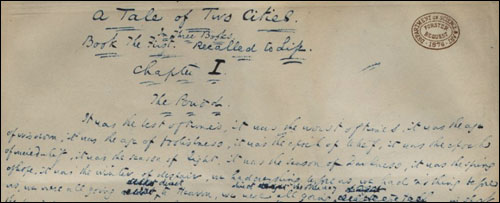 A Tale of Two Cities.
In Three Books.
Book the First. Recalled to Life.
Chapter I.
The Period.
It was the best of times, it was the worst of times, it was the age
of wisdom, it was the age of foolishness, it was the epoch of belief, it was the epoch
of incredulity, it was the season of Light, it was the season of Darkness, it was the spring
of hope, it was the winter of despair, we had everything before us, we had nothing before
us, we were all going direct to Heaven, we were all going
DEPARTMENT OF SCIENCE & ART
FORSTER
BEQUEST
1876